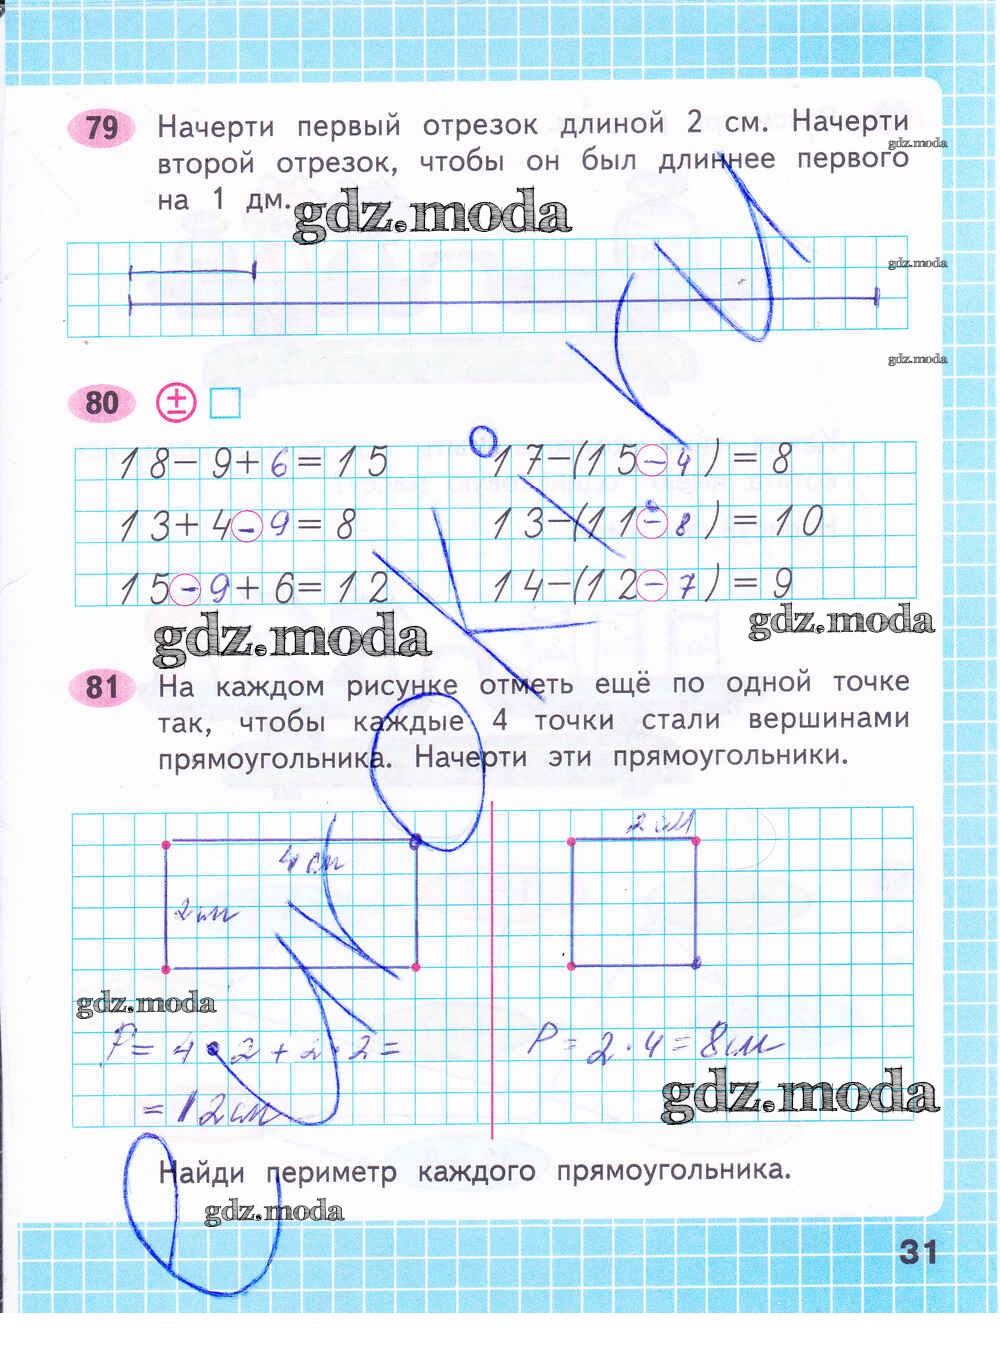 79 Начерти первый отрезок длиной 2 см. Начерти
второй отрезок, чтобы он был длиннее первого
на 1 дм.
gdz.moda
gdz.moda
gdz.moda
gdz.moda
80 ±
18-9+6=15 17-(15-4)=8
13+4-9=8 13-(11-8)=10
15-9+6=12 14-(12-7)=9
gdz.moda gdz.moda
81 На каждом рисунке отметь ещё по одной точке
так, чтобы каждые 4 точки стали вершинами
прямоугольника. Начерти эти прямоугольники.
2 см
4 см
2 см
gdz.moda
P= 4·2+2·2= P=2·4=8см
=12см
gdz.moda
Найди периметр каждого прямоугольника.
gdz.moda
31